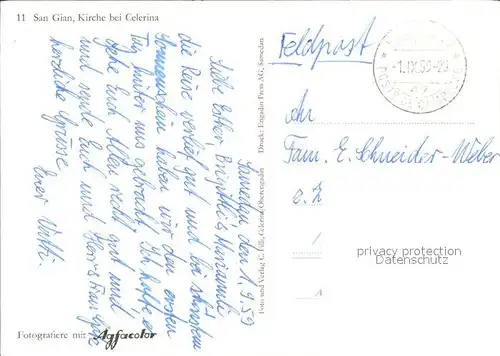 11 San Gian, Kirche bei Celerina
Samedan den 1.9.59
Liebe Esther, Brigitte & Mariannli
die Reise verlief gut und bei schönstem
Sonnenschein haben wir den ersten
Tag hinter uns gebracht. Ich hoffe es
gehe Euch Allen recht gut und
und sende Euch und
herzliche Grüsse
Euer Vatti.
Fotografiere mit Agfacolor
Foto und Verlag C. Filli, Celerina/Oberengadin
Druck: Engadin Press AG, Samedan.
Feldpost
-1.IX.59-20
An
Fam. E. Schneider-Weber
privacy protection
www.ansichtskarten-center.de